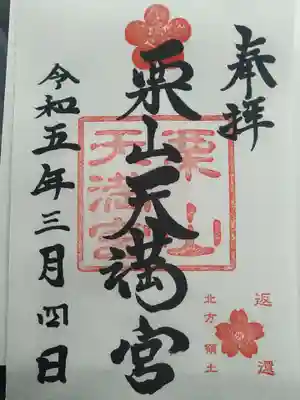 奉拝
栗山天満宮
令和五年三月四日
栗山
天満宮
返還
北方領土